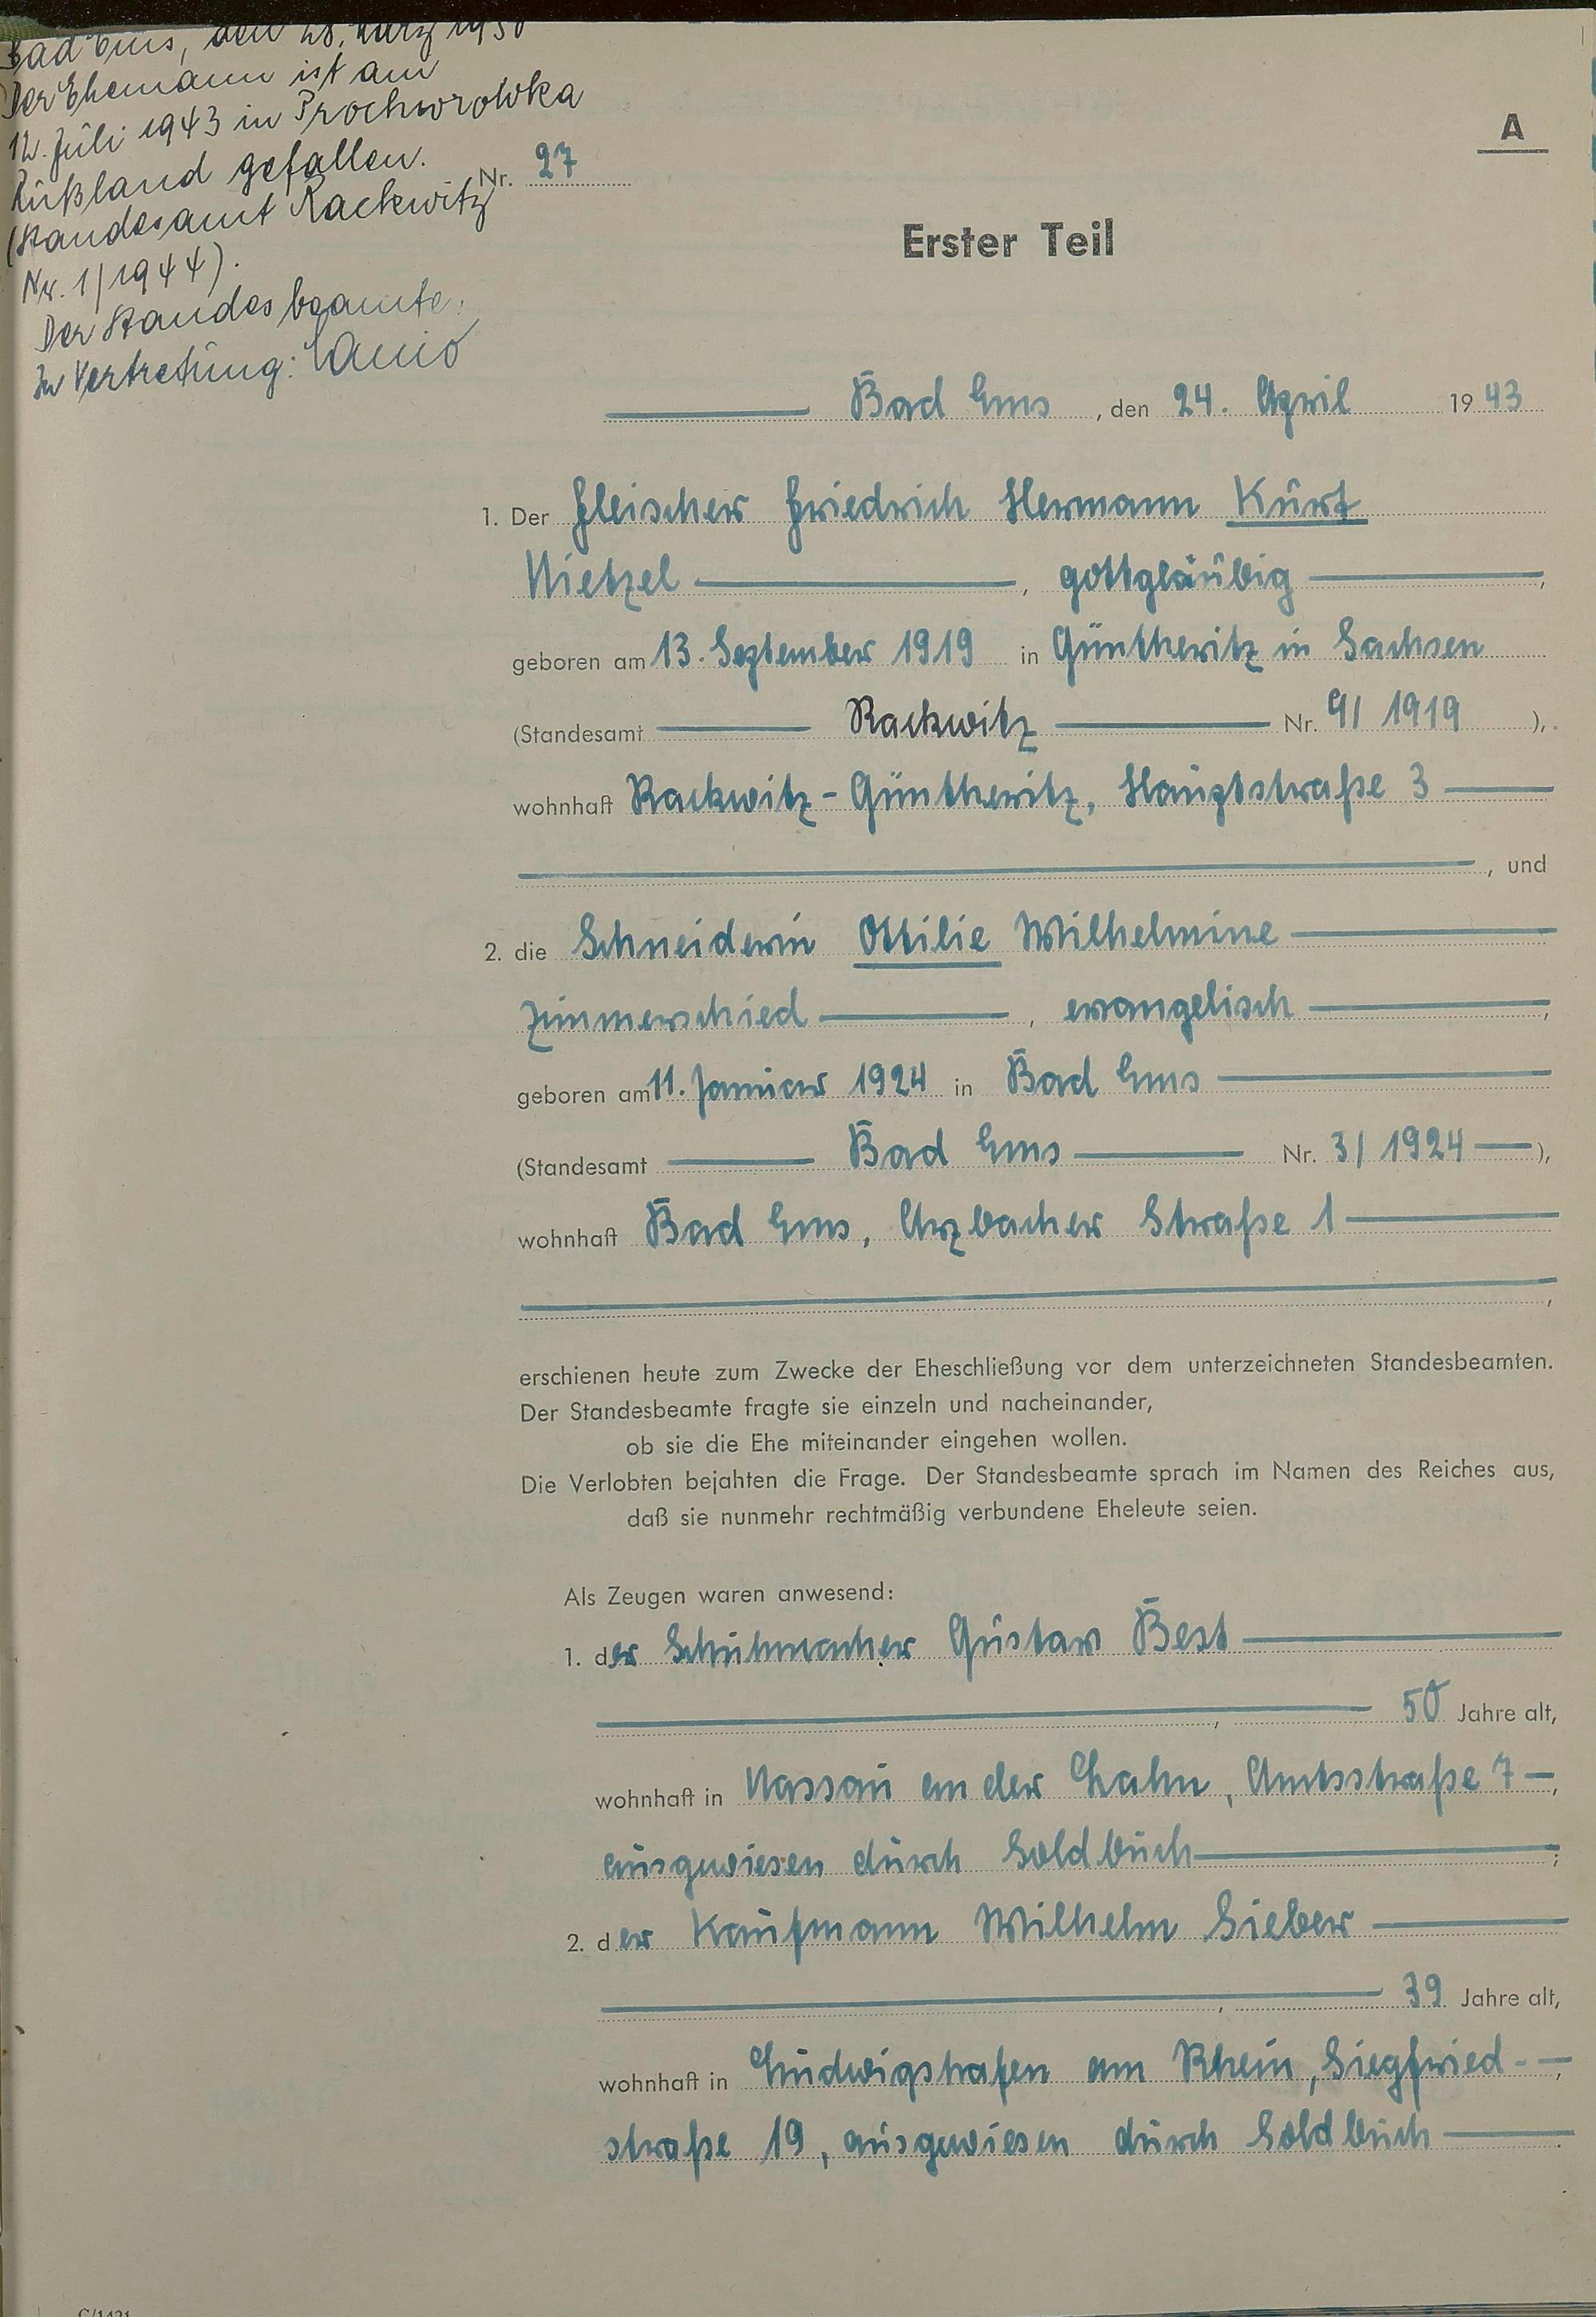 Bad Ems, den 28. März 1950
Der Ehemann ist am
12. Juli 1943 in Prochorowka
Rußland gefallen.
(Standesamt Rackwitz
Nr. 1/1944).
Der Standesbeamte:
In Vertretung:
A
Nr. 27
Erster Teil
Bad Ems, den 24. April 1943
1. Der Fleischer Friedrich Hermann Kurt
Nietzel, gottgläubig,
geboren am 13. September 1919 in Güntheritz in Sachsen
(Standesamt Rackwitz Nr. 9/1919),
wohnhaft Rackwitz-Güntheritz, Hauptstraße 3
, und
2. die Schneiderin Ottilie Wilhelmine
Zimmerschied, evangelisch,
geboren am 11. Januar 1924 in Bad Ems
(Standesamt Bad Ems Nr. 3/1924),
wohnhaft Bad Ems, Arzbacher Straße 1
,
erschienen heute zum Zwecke der Eheschließung vor dem unterzeichneten Standesbeamten.
Der Standesbeamte fragte sie einzeln und nacheinander,
ob sie die Ehe miteinander eingehen wollen.
Die Verlobten bejahten die Frage. Der Standesbeamte sprach im Namen des Reiches aus,
daß sie nunmehr rechtmäßig verbundene Eheleute seien.
Als Zeugen waren anwesend:
1. der Schuhmacher Gustav Best
, 50 Jahre alt,
wohnhaft in Nassau an der Lahn, Amtsstraße 7,
ausgewiesen durch Soldbuch;
2. der Kaufmann Wilhelm Sieber
, 39 Jahre alt,
wohnhaft in Ludwigshafen am Rhein, Siegfried-,
straße 19, ausgewiesen durch Soldbuch.
C/1421